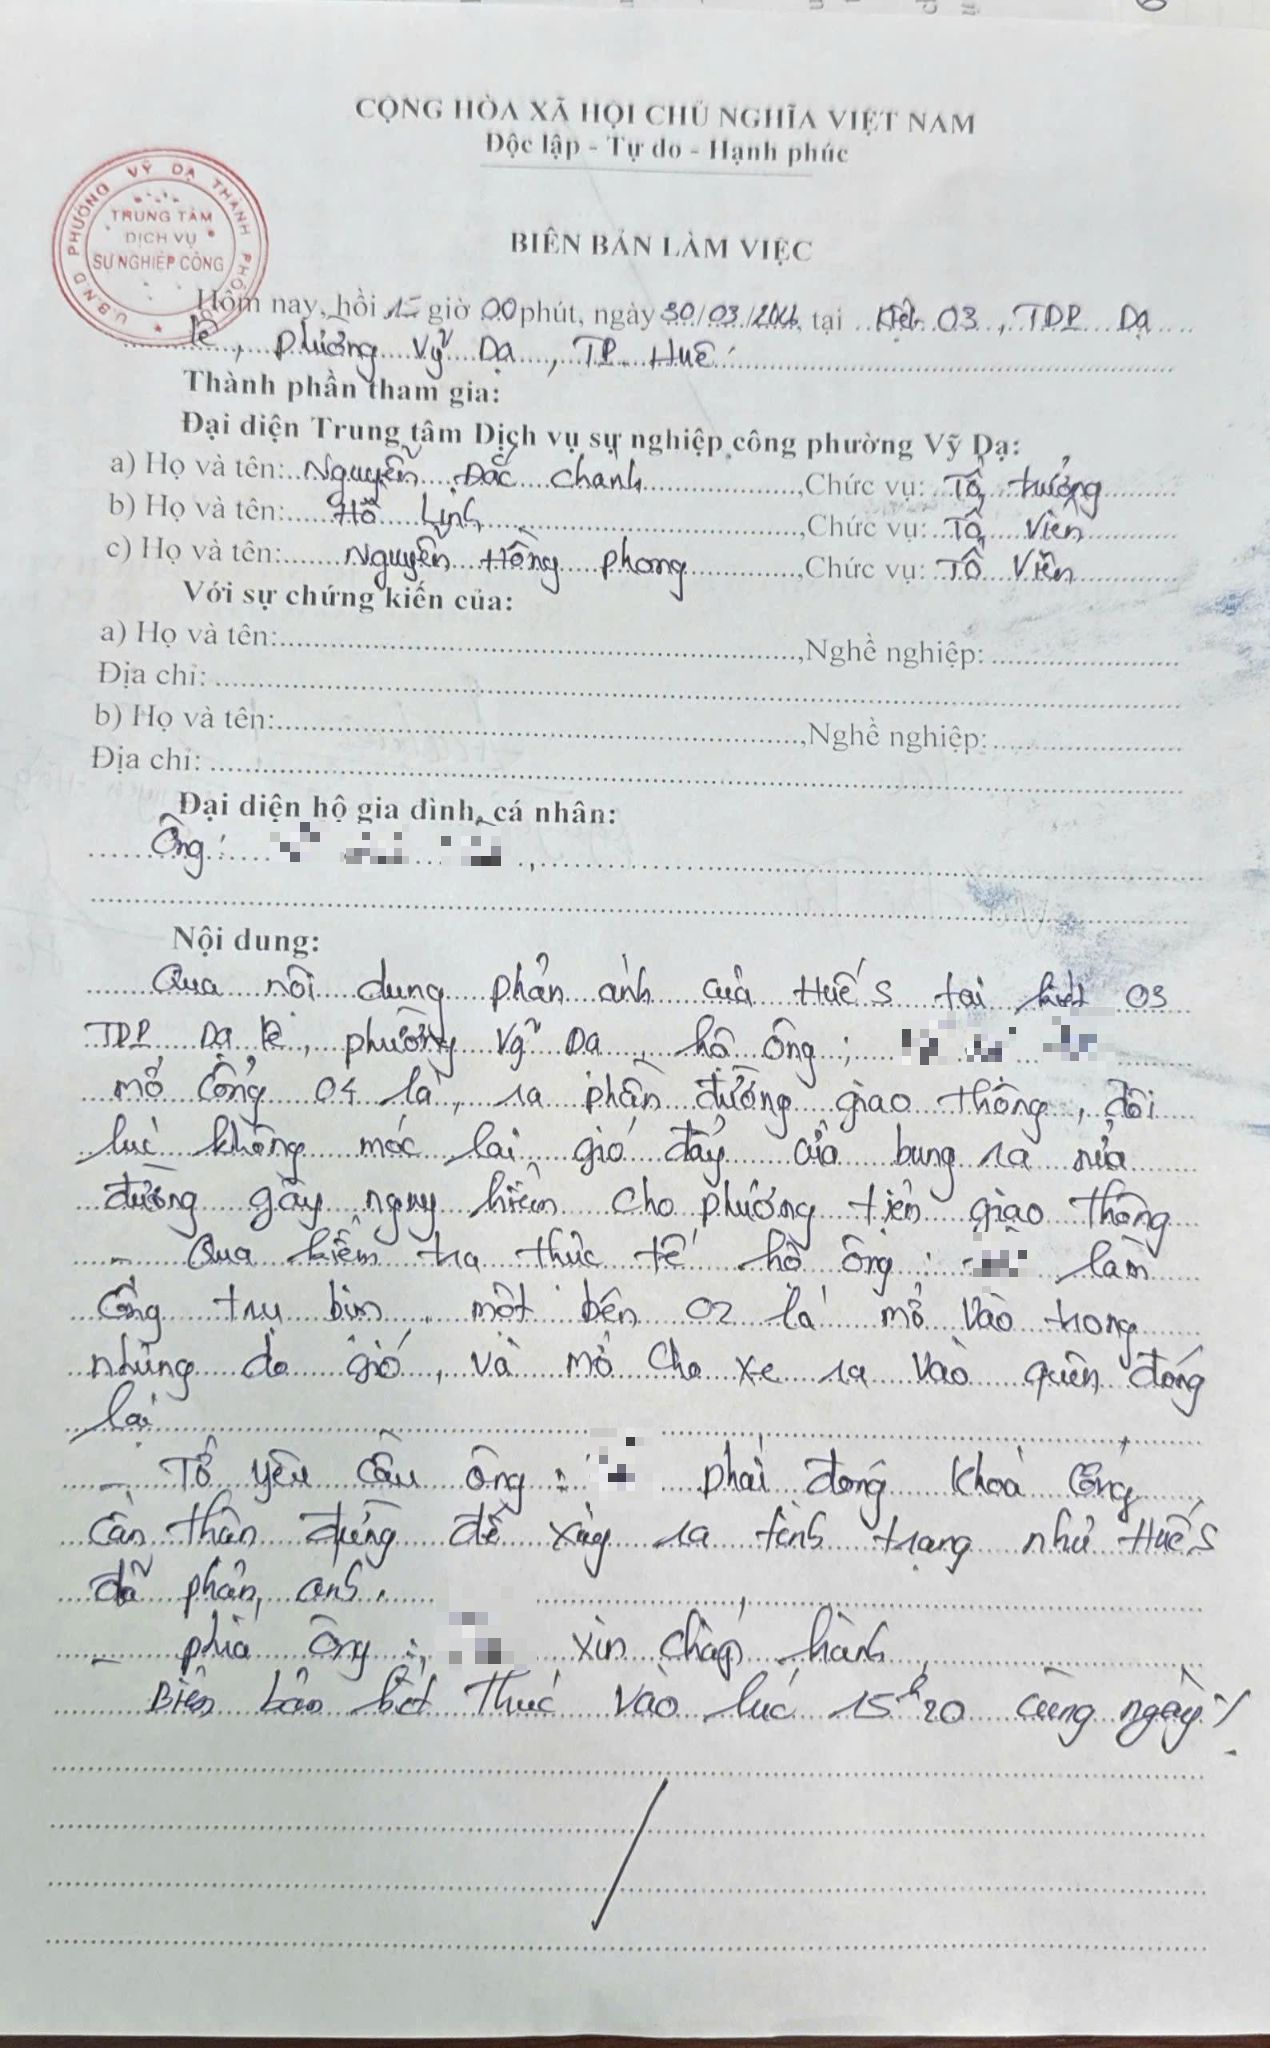 CỘNG HÒA XÃ HỘI CHỦ NGHĨA VIỆT NAM
Độc lập - Tự do - Hạnh phúc
U.B.N.D PHƯỜNG VỸ DẠ THÀNH PHỐ
TRUNG TÂM
DỊCH VỤ
SỰ NGHIỆP CÔNG
BIÊN BẢN LÀM VIỆC
Hôm nay, hồi 15 giờ 00 phút, ngày 30/03/2026, tại Kiệt 03, TDP Dạ
lê, phường Vỹ Dạ, TP Huế.
Thành phần tham gia:
Đại diện Trung tâm Dịch vụ sự nghiệp công phường Vỹ Dạ:
a) Họ và tên: Nguyễn Đắc Chanh, Chức vụ: Tổ trưởng
b) Họ và tên: Hồ Lịnh, Chức vụ: Tổ Viên
c) Họ và tên: Nguyễn Hồng Phong, Chức vụ: Tổ Viên
Với sự chứng kiến của:
a) Họ và tên:, Nghề nghiệp:
Địa chỉ:
b) Họ và tên:, Nghề nghiệp:
Địa chỉ:
Đại diện hộ gia đình, cá nhân:
Ông:
Nội dung:
Qua nội dung phản ánh của Huế S tại kiệt 03
TDP Dạ lê, phường Vỹ Dạ, hộ ông:
mở cổng 04 lá, ra phần đường giao thông, đôi
lúc không móc lại gió đẩy cửa bung ra nửa
đường gây nguy hiểm cho phương tiện giao thông
- Qua kiểm tra thực tế hộ ông: làm
cổng trụ bìn một bên 02 lá mở vào trong
nhưng do gió, và mở cho xe ra vào quên đóng
lại
- Tổ yêu cầu ông: phải đóng khoá cổng
cẩn thận đừng để xảy ra tình trạng như Huế S
đã phản ánh.
- phía ông: xin chấp hành
Biên bản kết thúc vào lúc 15h20 cùng ngày./.